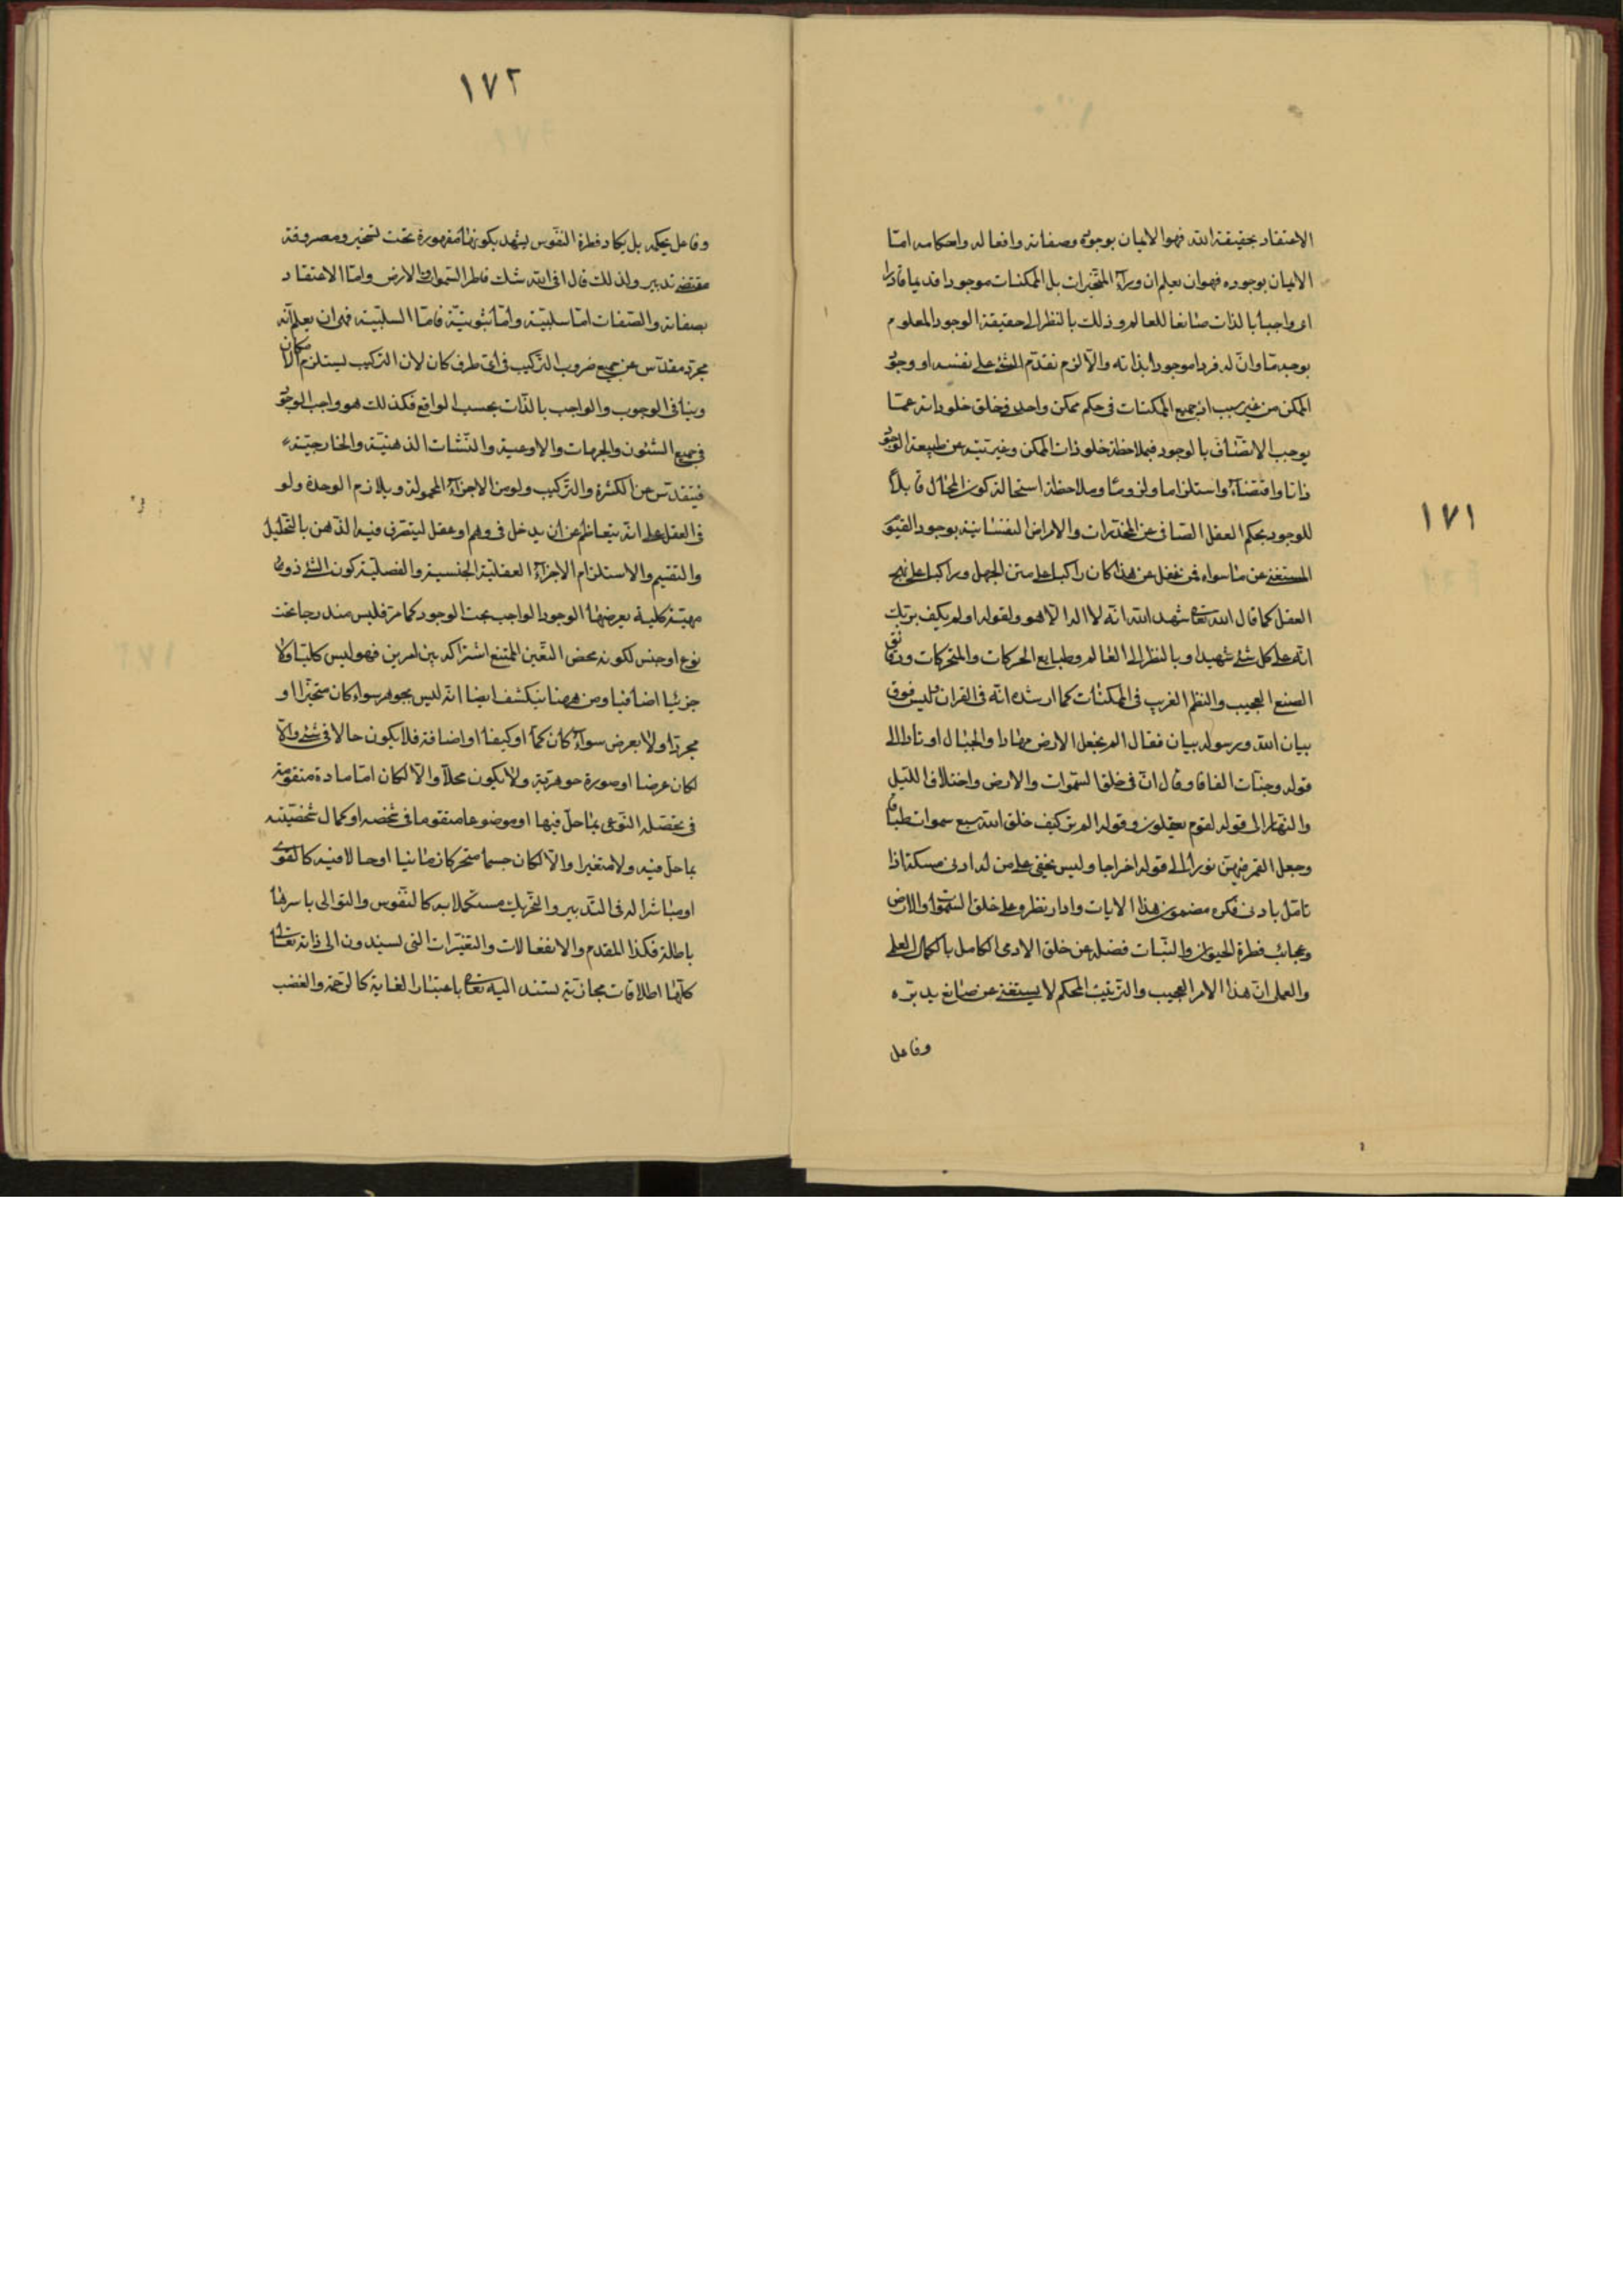 ١٧١
الاعتقاد بحقيقة الله فهو الايمان بوجوده وصفاته وافعاله واحكامه امّا
الايمان بوجوده فهو ان يعلم ان وراء المتحيزات بل الممكنات موجودا قديما قادرا
اى واجبا بالذات صانعا للعالم وذلك بالنظر الى حقيقة الوجود المعلوم
بوجه مّا وانّ له فردا موجودا بذاته والّا لزم تقدّم الشئ على نفسه او وجود
الممكن من غير سبب اذ جميع الممكنات فى حكم ممكن واحد فى خلوّ ذاته عمّا
يوجب الاتصاف بالوجود فبملاحظة خلو ذات الممكن وغيرتيته عن طبيعة الوجود
ذاتا واقتضاء واستلزاما ولزوما وملاحظة استحالة كون المحال قابلا
للوجود يحكم العقل الصافى عن المخدرات والامراض النفسانية بوجود القيوم
المستغنى عن ما سواه فمن غفل عن هذا كان راكبا على متن الجهل وراكبا على نهج
العقل كما قال الله تعالى شهد الله انّه لا اله الّا هو ولقوله اولم يكف بربّك
انّه على كل شئ شهيد او بالنظر الى العالم وطبايع الحركات والمتحركات ودقائق
الصنع العجيب والنظم الغريب فى الممكنات كما ارشد انّه فى القران فليس فوق
بيان الله ورسوله بيان فقال الم نجعل الارض مهادا والجبال اوتادا الى
قوله وجنّات الفافا وقال انّ فى خلق السّموات والارض واختلاف اللّيل
والنّهار الى قوله لقوم يعقلون وقوله الم تر كيف خلق الله سبع سموات طباقا
وجعل القمر فيهنّ نورا الى قوله اخراجا وليس يخفى على من له ادنى مسكة اذا
تامّل بادنى فكره مضمون هذا الايات وادار نظره على خلق السّموات والارض
وعجائب فطرة الحيوان والنّبات فضلا عن خلق الادمى الكامل بالكمال العلم
والعمل انّ هذا الامر العجيب والترتيب المحكم لا يستغنى عن صانع يدبّره
وفاعل
١٧٢
وفاعل يحكمه بل يكاد فطرة النّفوس يشهد بكونها مقهورة تحت تسخيره ومصروفة
مقتضى تدبيره ولذلك قال افى الله شك فاطر السّموات والارض وامّا الاعتقاد
بصفاته والصّفات امّا سلبيّة وامّا ثبوتيّة فامّا السلبيّة فهى ان يعلم انّه
مجرّد مقدّس عن جميع ضروب التركيب فى اىّ طرف كان لان التركيب يستلزم الامكان
وينافى الوجوب والواجب بالذّات بحسب الواقع فكذلك هو واجب الوجود
فى جميع الشئون والجهات والاوعية والنّشات الذهنيّة والخارجيّة
فيتقدّس عن الكثرة والتّركيب ولو من الاجزاء المحمولة ويلازم الوحدة ولو
فى العقل على انّه يتعاظم عن ان يدخل فى وهم او عقل ليتصرّف فيه الذّهن بالتّحليل
والتقسيم والاستلزام الاجزاء العقليّة الجنسية والفصليّة كون الشئ ذو
مهيّة كلية يعرضها الوجود الواجب بحت الوجود كما مرّ فليس مندرجا تحت
نوع او جنس لكونه محض التعّين الممتنع اشتراكه بين امرين فهو ليس كليّا ولا
جزئيا اضافيا ومن ههنا ينكشف ايضا انّه ليس بجوهر سواء كان متحيّزا او
مجرّدا ولا بعرض سواء كان كمّا او كيفا او اضافة فلا يكون حالا فى شئ والّا
لكان عرضا او صورة جوهريّة ولا يكون محلا والّا لكان امّا مادة متقومة
فى تحصّله النّوعى بما حلّ فيها او موضوعا متقوما فى شخصه او كمال شخصيّته
بما حلّ فيه ولا متغيرا والّا لكان جسما متحركا زمانيا او حالا فيه كالقوى
او مباشرا له فى التّدبير والتّحريك مستكملا به كالنّفوس والتوالى باسرها
باطلة فكذا المقدم والانفعالات والتغيّرات التى يسندون الى ذاته تعالى
كلّها اطلاقات مجازيّة يستند اليه تعالى باعتبار الغاية كالرّحمة والغضب